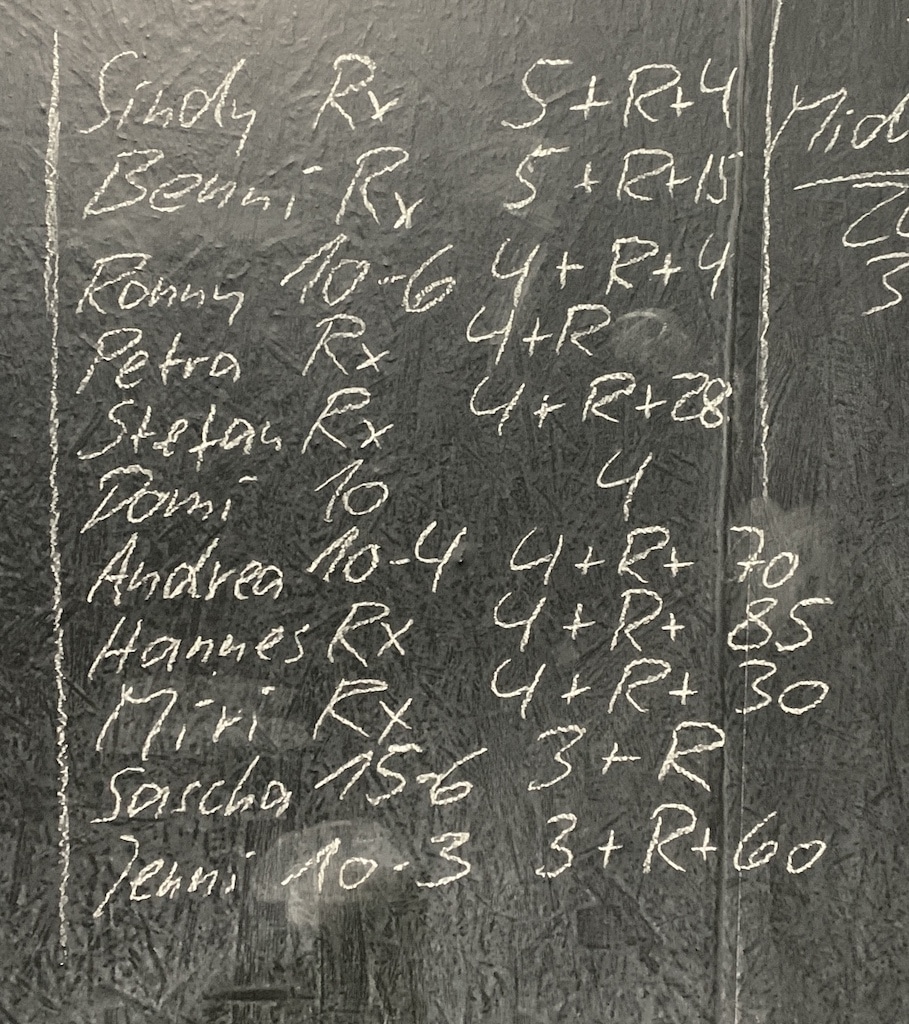 Sindy Rx 5+R+4
Benni Rx 5+R+15
Ronny 10-6 4+R+4
Petra Rx 4+R
Stefan Rx 4+R+28
Domi 10 4
Andrea 10-4 4+R+70
Hannes Rx 4+R+85
Miri Rx 4+R+30
Sascha 15-6 3+R
Jenni 10-3 3+R+60